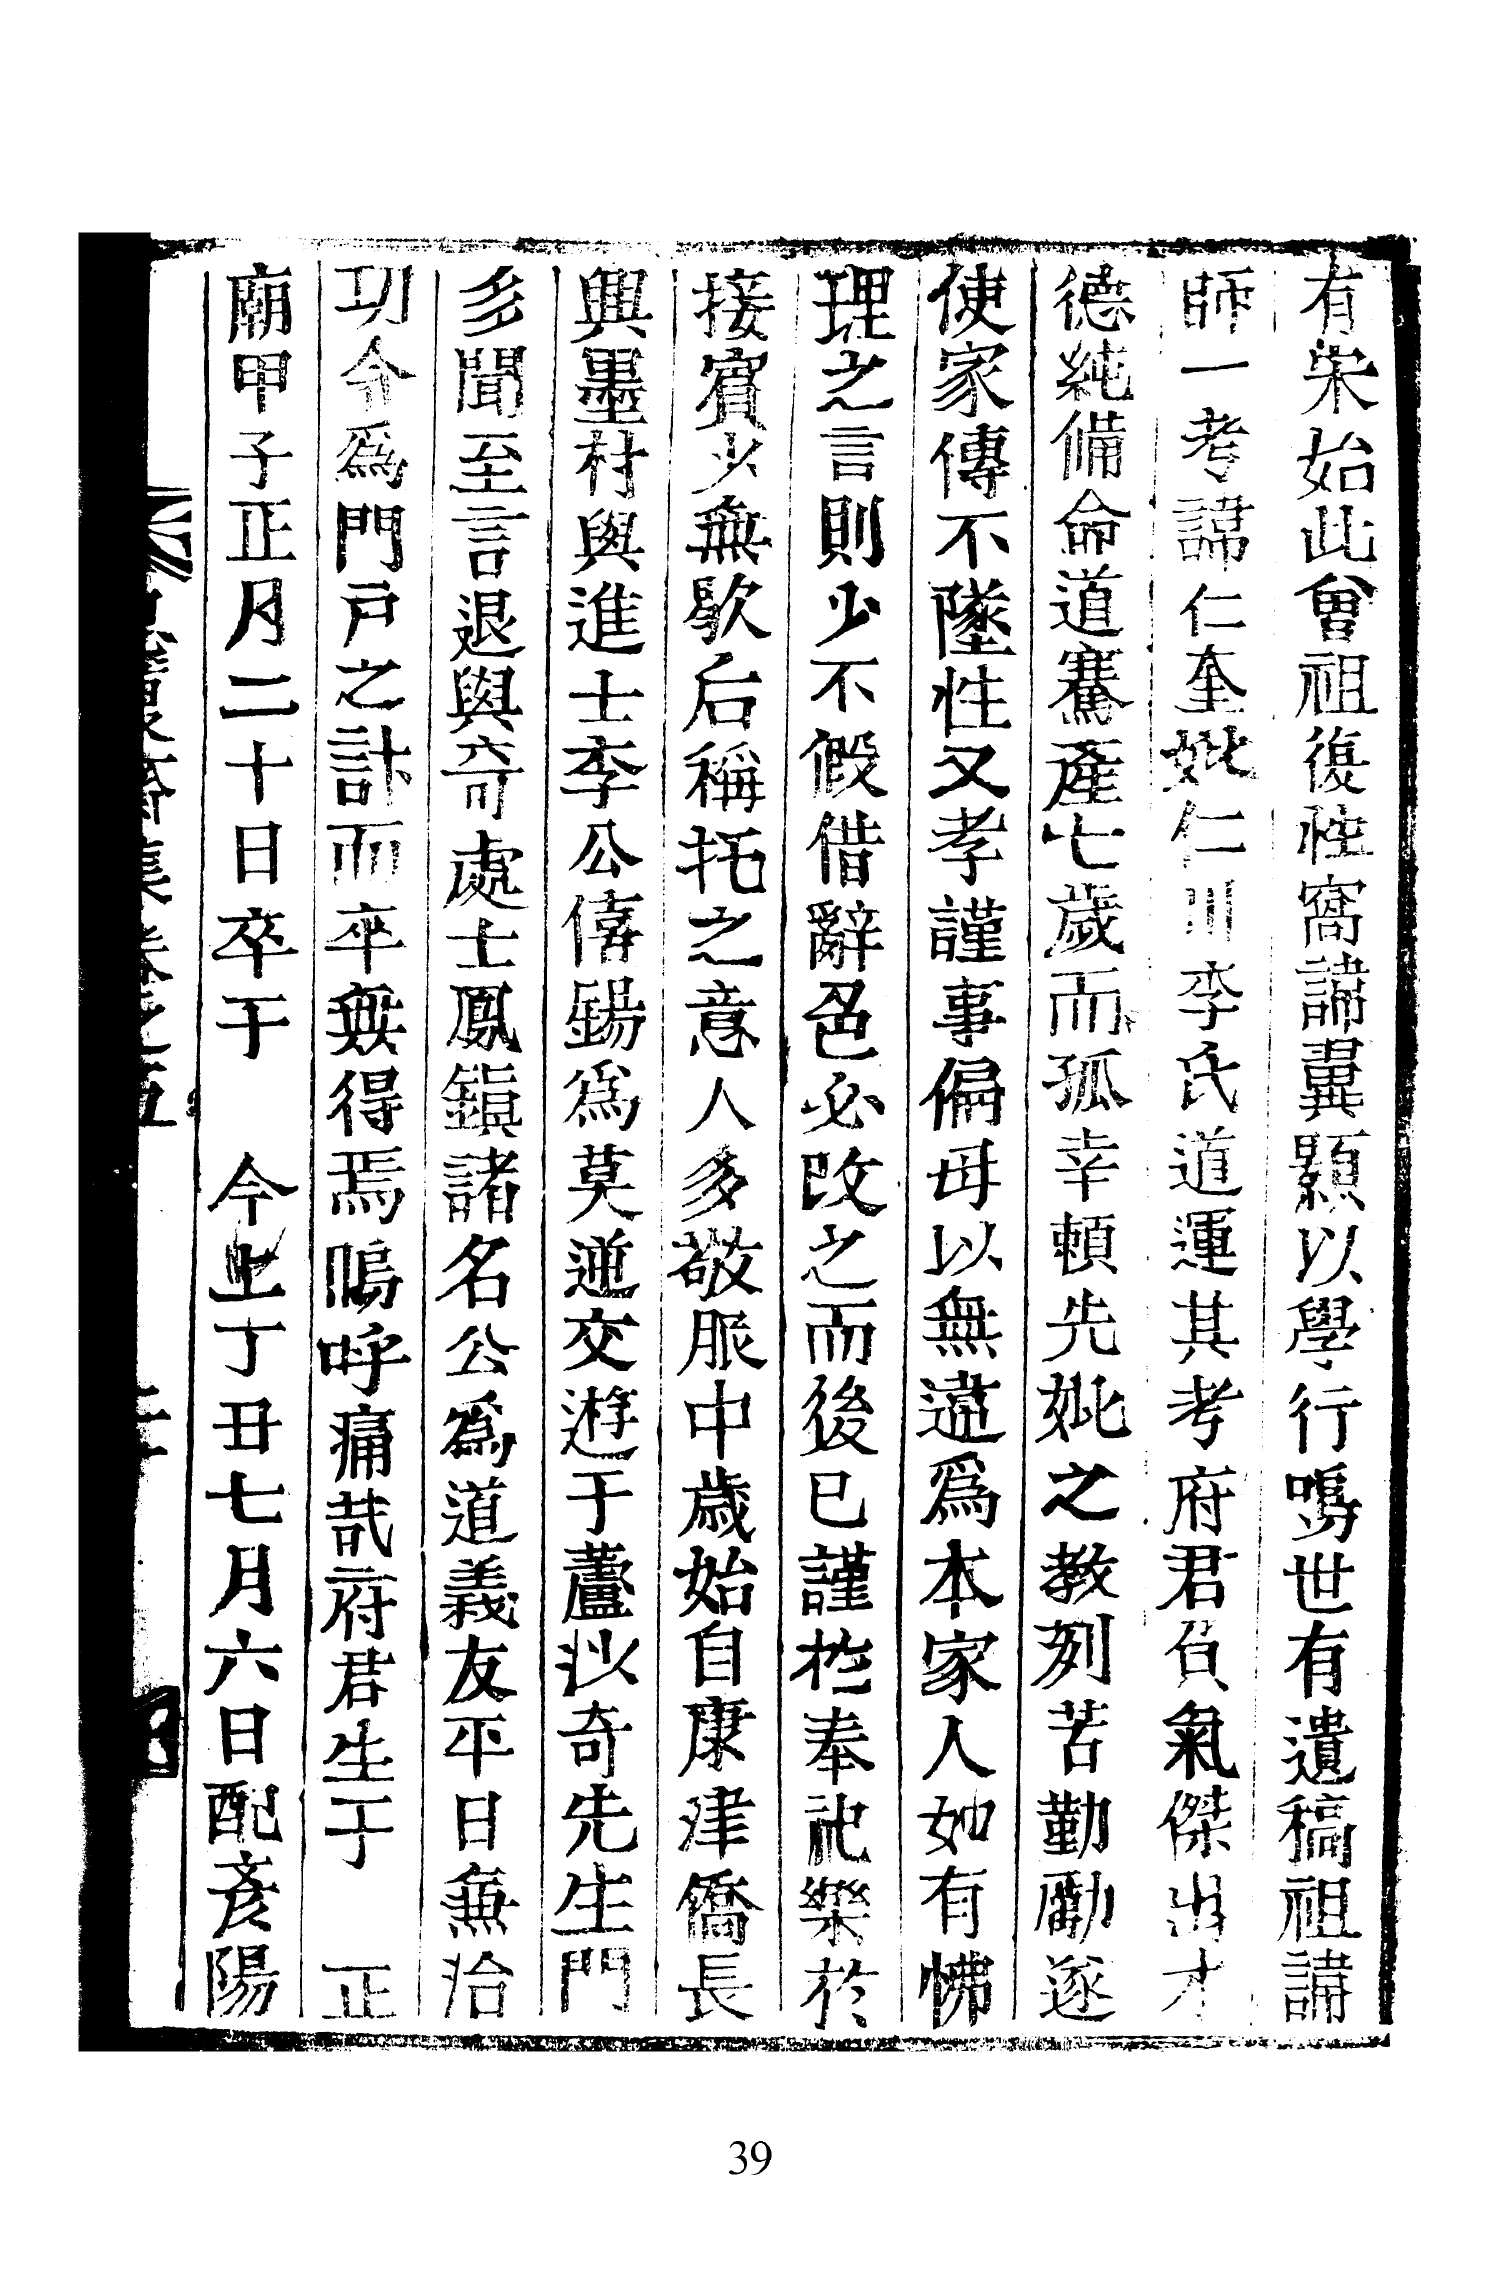 有宋始此曾祖復性窩諱翼顯以學行鳴世有遺稿祖諱
師一考諱仁奎妣仁川李氏道運其考府君負氣傑出才
德純備命道騫產七歲而孤幸賴先妣之教列苦勤勵遂
使家傳不墜性又孝謹事偏母以無違爲本家人如有怫
理之言則少不假借辭色必改之而後已謹於奉祀樂於
接賓火無歇后稱托之意人多敬服中歲始自康津僑長
興墨村與進士李公僖錫爲莫逆交遊于蘆沙奇先生門
多聞至言退與奇處士鳳鎭諸名公爲道義友平日無治
功令爲門戶之計而卒無得焉嗚呼痛哉府君生于 正
廟甲子正月二十日卒于 今上丁丑七月六日配彥陽
齋集卷之五
39